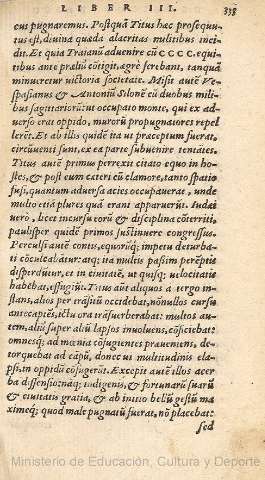 LIBER III. 338
cus pugnaremus. Postquã Titus hæc prosequu-
tus est, diuina quæda alacritas militibus inci-
dit. Et quia Traianũ aduenire cũ CCCC. equi-
tibus ante præliũ cõtigit, ægrè ferebant, tanquã
minueretur victoria societate. Misit autẽ Ve-
spasianus & Antoniũ Silonẽ cũ duobus mili-
bus sagittariorũ: ut occupato monte, qui ex ad-
uerso erat oppido, murorũ propugnatores repel
leret. Et ab illis quidẽ ita ut præceptum fuerat,
circũuenti sunt, ex ea parte subuenire tentãtes.
Titus autẽ primus perrexit citato equo in ho-
stes, & post eum cæteri cũ clamore, tanto spatio
fusi, quantum aduersa acies occupauerat, unde
multo etiã plures quã erant apparuerũt. Iudæi
uerò, licet incursu eorũ & disciplina cõterriti,
paulisper quidẽ primos sustinuere congressus.
Perculsi autẽ contis, equorũq; impetu deturba-
ti cõculcabãtur: atq; ita multis passim perẽptis
disperdũtur, et in ciuitatẽ, ut quisq; uelocitatẽ
habebat, effugiũt. Titus aũt aliquos a tergo in-
stans, alios per trãsitũ occidebat, nõnullos cursu
antecapiẽs, ictu ora trãsuerberabat: multos au-
tem, aliũ super aliũ lapsos inuoluens, cõficiebat:
omnesq; ad mœnia cõfugientes præueniens, de-
torquebat ad cãpũ, donec ui multitudinis ela-
psi, in oppidũ cõfugerũt. Excepit autẽ illos acer
ba dissensio: nãq; indigenis, & fortunarũ suarũ
& ciuitatis gratia, & ab initio bellũ gestũ ma
ximeq; quod male pugnatũ fuerat, nõ placebat:
sed
Ministerio de Educación, Cultura y Deporte